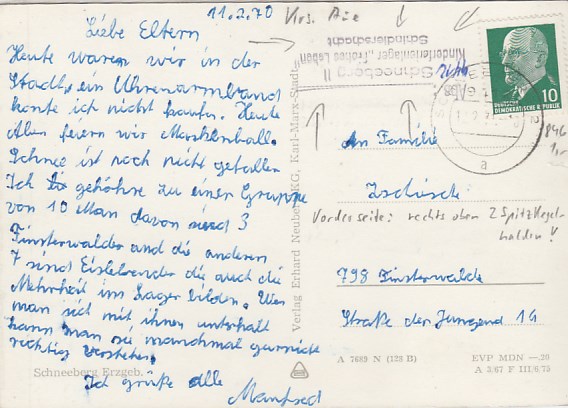 11.2.70
Krs. Aue
Liebe Eltern
Heute waren wir in der
Stadt, ein Uhrenarmband
konte ich nicht kaufen. Heute
Aben feiern wir Maskenball.
Schnee ist noch nicht gefallen
Ich gehöhre zu einer Gruppe
von 10 Man davon sind 3
Finsterwalder und die anderen
7 sind Eislebender die auch die
Mehrheit im Lager bilden. Wen
man sich mit ihnen unterhält
kann man sie manchmal garnicht
richtig verstehen.
Ich grüße alle
Manfred
Schneeberg Erzgeb.
Verlag Erhard Neubert KG, Karl-Marx-Stadt
Schneeberg II
Kinderferienlager „Frohes Leben"
Schindlerschacht
10
DEUTSCHE
DEMOKRATISCHE REPUBLIK
a
846
1,-
An Familie
Zschiesche
Vorderseite: rechts oben 2 Spitzkegel-
halden!
798 Finsterwalde
Straße der Jungend 14
A 7689 N (128 B)
EVP MDN —.20
A 3/67 F III/6/75